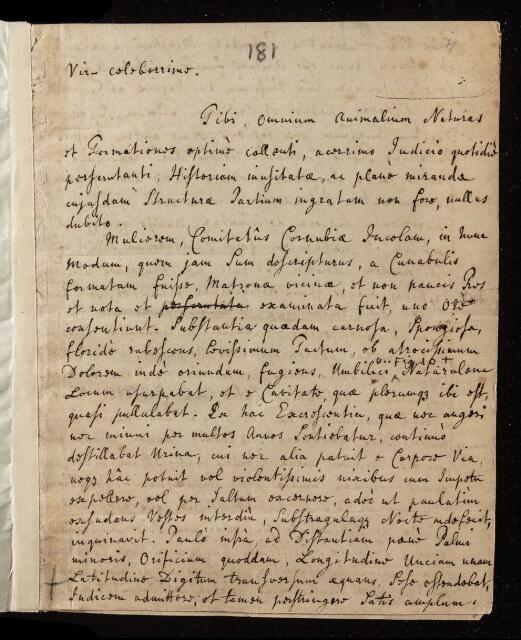 181
Vir celeberrime.
Tibi, omnium Animalium Naturas
et Formationes optimè callenti, acerrimo Judicio quotidiè
perscrutanti, Historiam inusitatæ, ac planè mirandæ
cujusdam Structuræ Partium ingratam non fore, nullus
dubito.
Mulierem, Comitatûs Cornubiæ Incolam, in hunc
Modum, quem jam sum descripturus, a Cunabulis
formatam fuisse, Matronæ vicinæ, et non paucis
et nota et perscrutata examinata fuit, uno Ore
consentiunt. Substantia quædam carnosa, Spongiosa,
floridè rubescens, levissimum Tactum, ob atrocissimum
Dolorem inde oriundum, fugiens, Umbilici Naturalem
Locum usurpabat, et e Cavitate, quæ plerumq; ibi est,
quasi pullulabat. In hac Excrescentia, quæ nec augeri
nec minui per multos Annos sentiebatur, continuò
destillabat Urina, cui nec alia patuit e Corpore Via,
neq; hâc potuit vel violentissimis nixibus cum Impetu
expellere, vel per Saltum excernere, adeò ut paulatim
exsudans Vestes interdiu, Substragulaq; Nocte madefecit,
inquinavit. Paulò infra, ad Distantiam pæne Palmi
minoris, Orificium quoddam, Longitudine Unciam unam
Latitudine Digitum transversum æquans, Sese ostendebat,
Indicem admittere, et tamen perstringere Satis amplum: